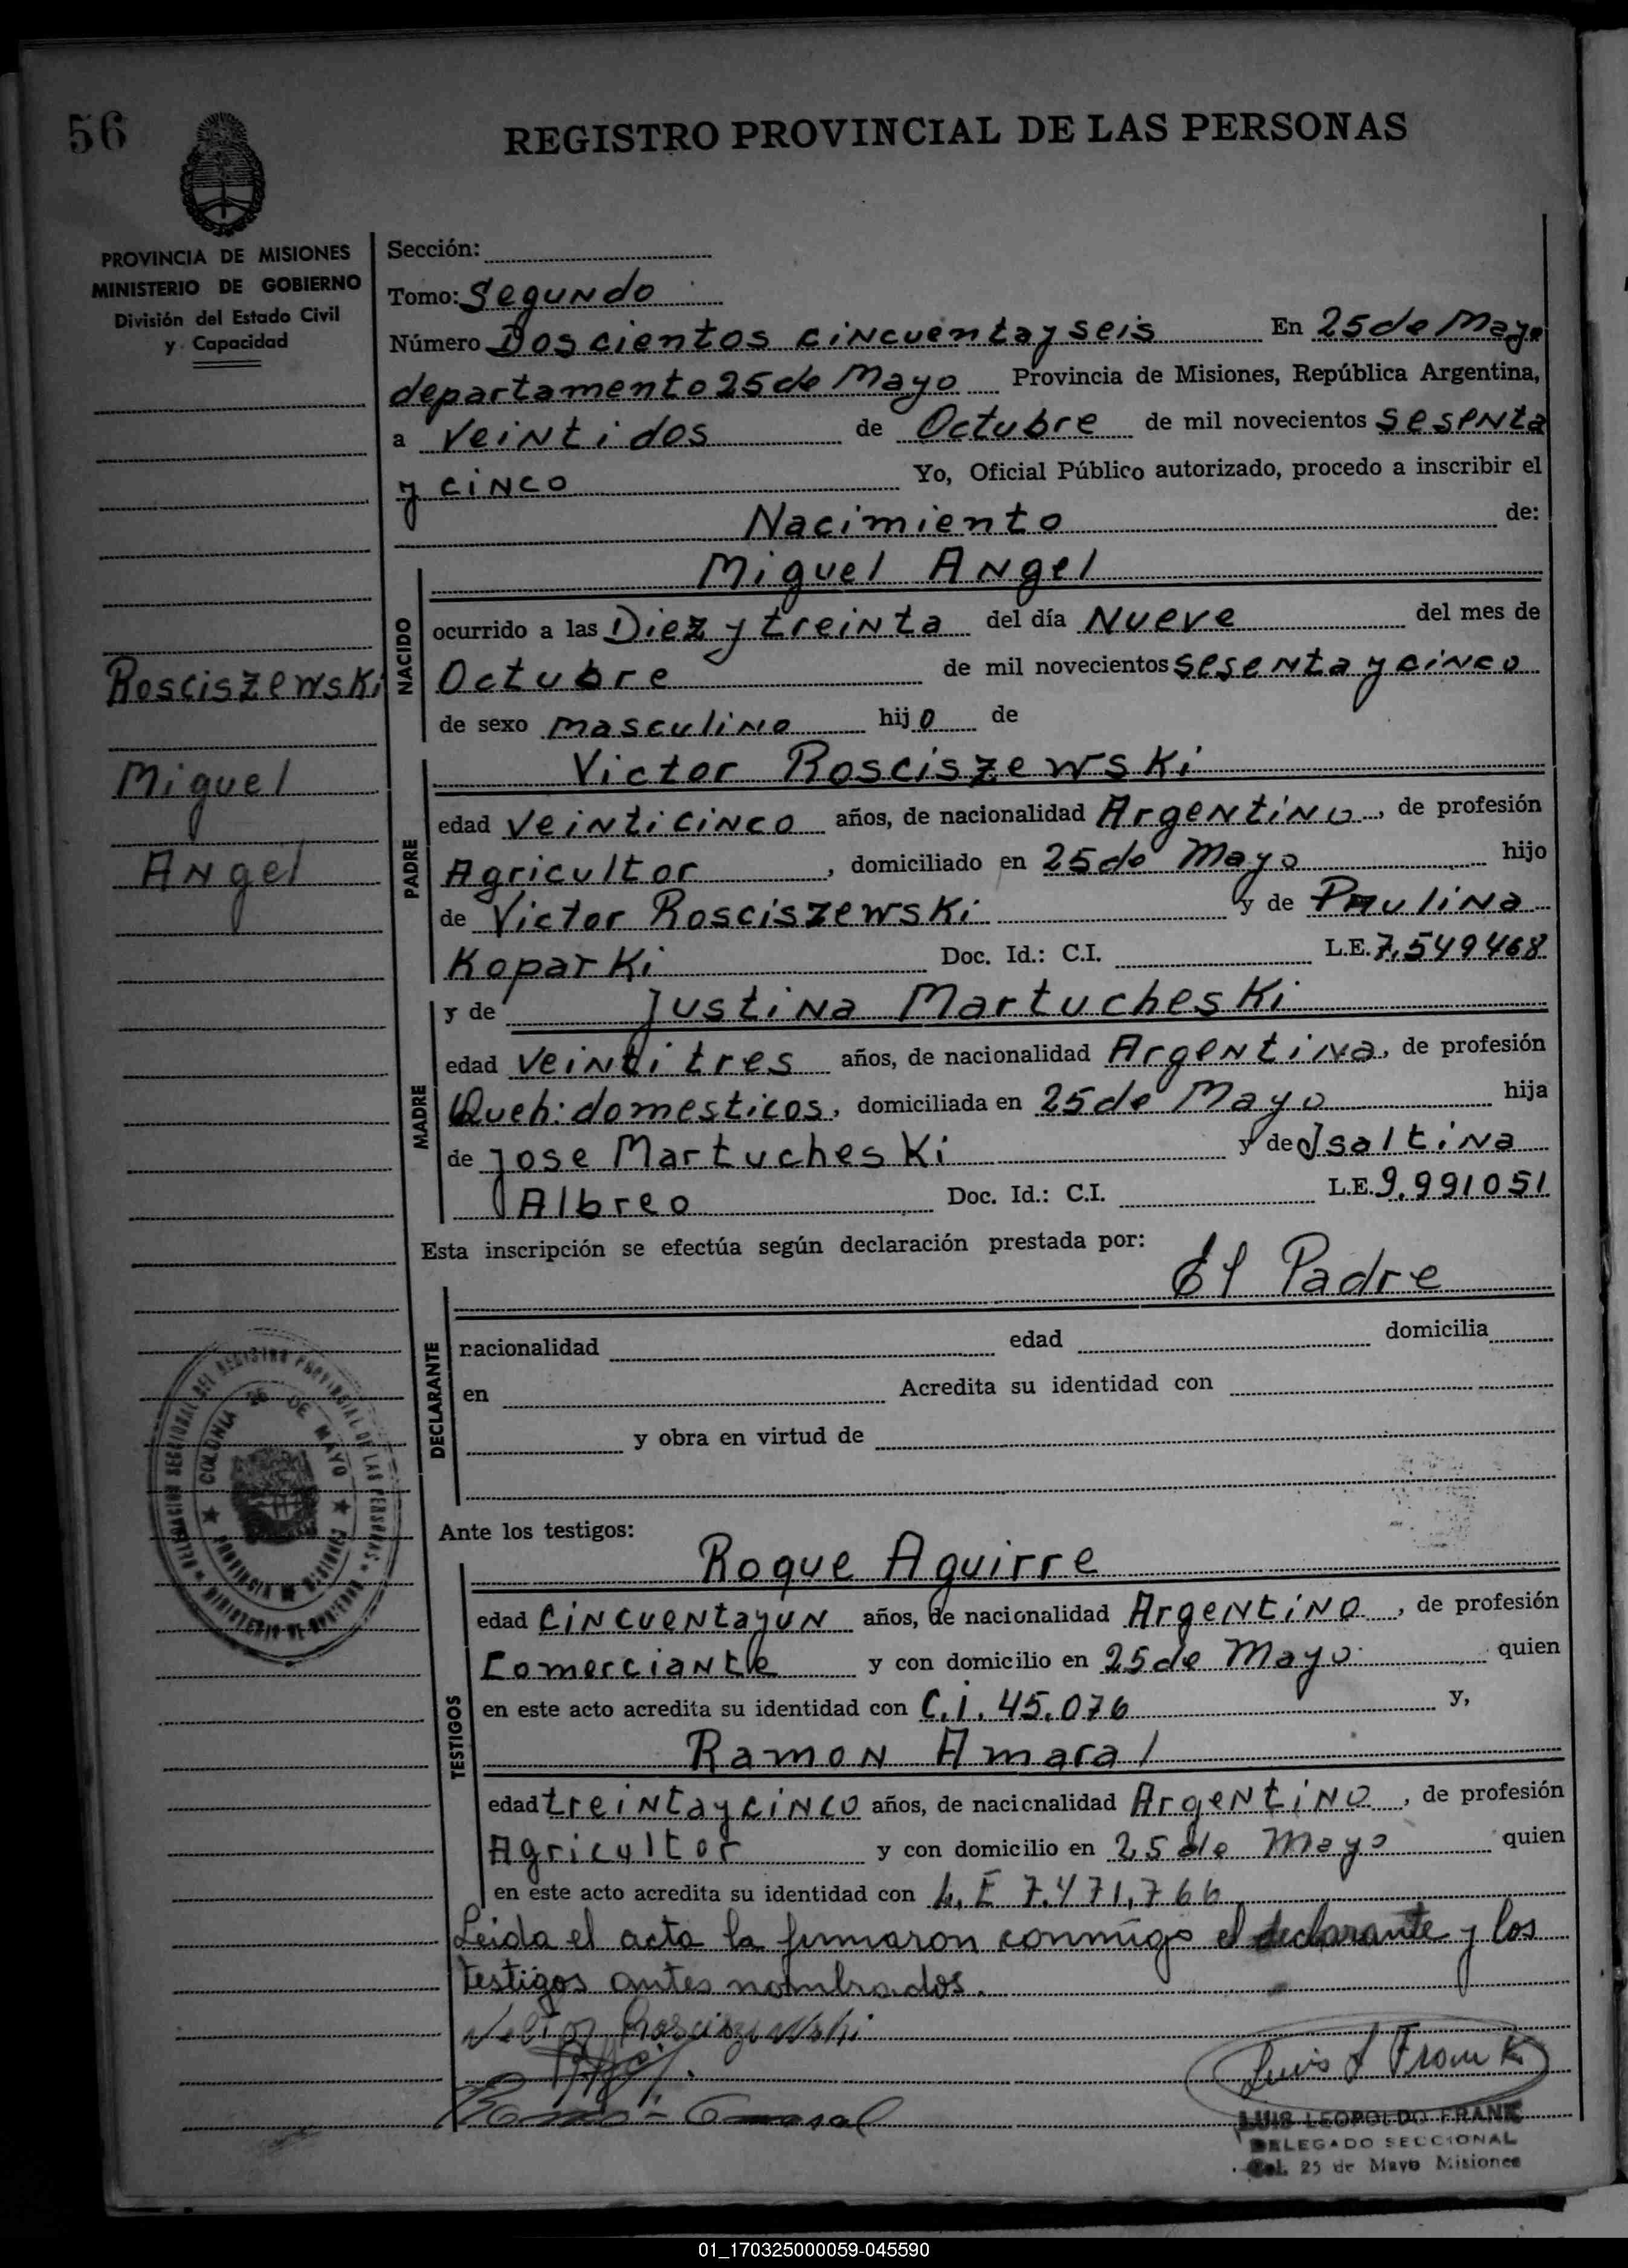 56
REGISTRO PROVINCIAL DE LAS PERSONAS
PROVINCIA DE MISIONES
MINISTERIO DE GOBIERNO
División del Estado Civil
y Capacidad
Rosciszewski
Miguel
Angel
Sección:
Tomo: Segundo
Número Doscientos cincuenta y seis En 25 de Mayo
departamento 25 de Mayo Provincia de Misiones, República Argentina,
a veintidos de Octubre de mil novecientos sesenta
y cinco Yo, Oficial Público autorizado, procedo a inscribir el
Nacimiento de:
NACIDO
Miguel Angel
ocurrido a las Diez y treinta del día Nueve del mes de
Octubre de mil novecientos sesenta y cinco
de sexo masculino hijo de
PADRE
Victor Rosciszewski
edad veinticinco años, de nacionalidad Argentino, de profesión
Agricultor, domiciliado en 25 de Mayo hijo
de Victor Rosciszewski y de Paulina
Koparki Doc. Id.: C.I. L.E. 7.549468
MADRE
y de Justina Martucheski
edad veinti tres años, de nacionalidad Argentina, de profesión
Queh: domesticos, domiciliada en 25 de Mayo hija
de Jose Martucheski y de Isaltina
Albreo Doc. Id.: C.I. L.E. 9.991051
Esta inscripción se efectúa según declaración prestada por:
El Padre
DECLARANTE
nacionalidad edad domicilia
en Acredita su identidad con
y obra en virtud de
Ante los testigos:
TESTIGOS
Roque Aguirre
edad cincuenta y un años, de nacionalidad Argentino, de profesión
Comerciante y con domicilio en 25 de Mayo quien
en este acto acredita su identidad con C.I. 45.076 y,
Ramon Amaral
edad treinta y cinco años, de nacionalidad Argentino, de profesión
Agricultor y con domicilio en 25 de Mayo quien
en este acto acredita su identidad con L.E 7.471,766
Leida el acta la firmaron conmigo el declarante y los
testigos antes nombrados.
Victor Rosciszewski
Luis L Frank
LUIS LEOPOLDO FRANK
DELEGADO SECCIONAL
Col. 25 de Mayo Misiones
COLONIA 25 DE MAYO
01_170325000059-045590